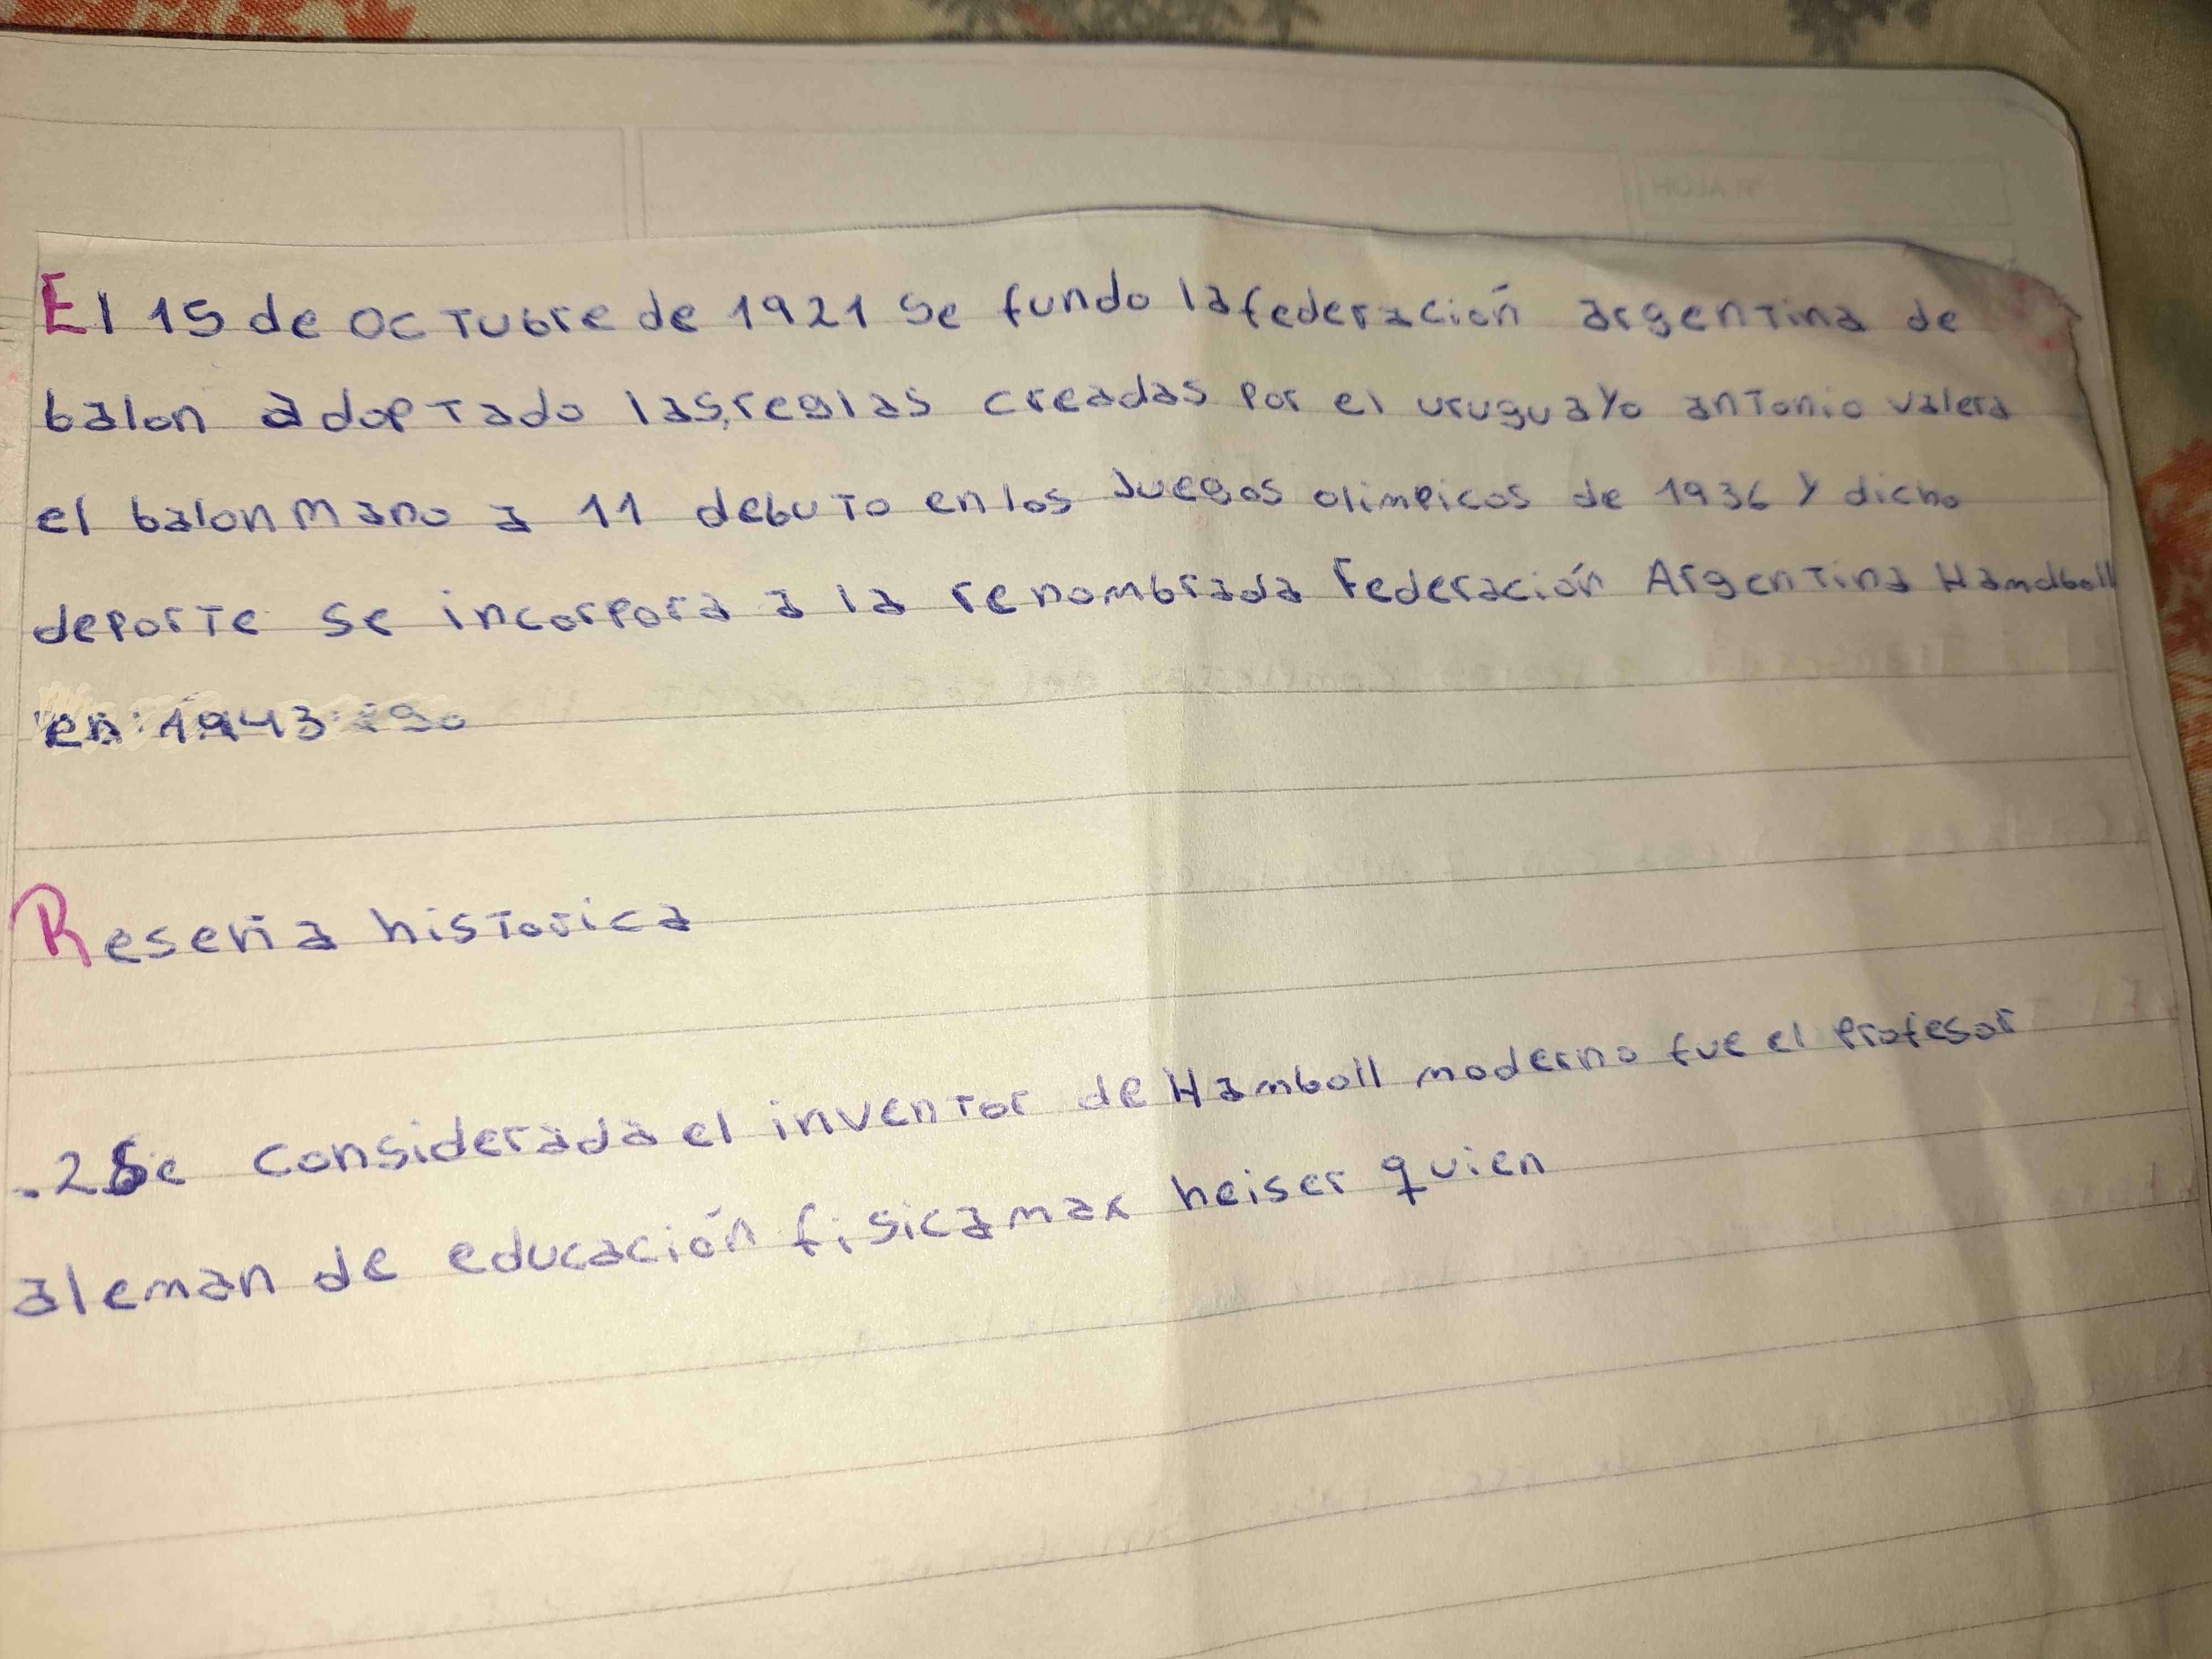 El 15 de OCTubre de 1921 Se fundo la federación argentina de
balon adoptado las, reglas creadas por el uruguayo antonio valera
el balonmano a 11 debuto en los Juegos olimpicos de 1936 y dicho
deporte se incorpora a la renombrada Federación Argentina Handboll
en 1943
Reseña historica
.2 Se considerada el inventor de Hamboll moderno fue el profesor
aleman de educación fisica max heiser quien